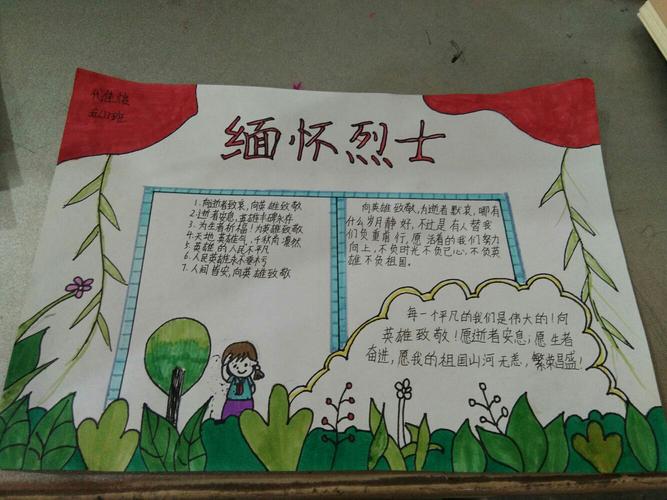 五(1)班
缅怀烈士
1.向逝者致哀,向英雄致敬
2.逝者安息,英雄丰碑永存
3.为生者祈福!为英雄致敬
4.天地英雄气,千秋尚凛然
5.英雄的人民不平凡
6.人民英雄永不垂朽
7.人间皆安,向英雄致敬
向英雄致敬,为逝者默哀,哪有
什么岁月静好,不过是有人替我
们负重前行,愿活着的我们努力
向上,不负时光不负己心,不负英
雄不负祖国。
每一个平凡的我们是伟大的!向
英雄致敬!愿逝者安息,愿生者
奋进,愿我的祖国山河无恙,繁荣昌盛!